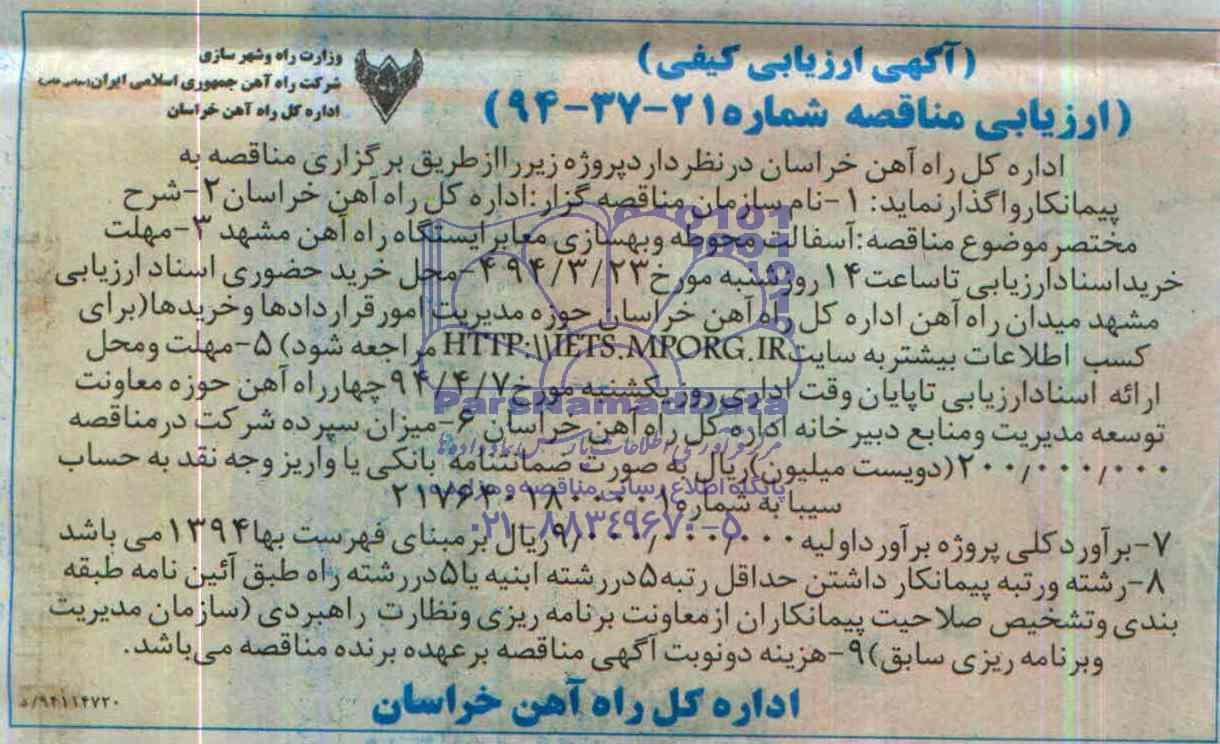 (آگهی ارزیابی کیفی)
(ارزیابی مناقصه شماره ۲۱-۳۷-۹۴)
وزارت راه وشهر سازی
شرکت راه آهن جمهوری اسلامی ایران
اداره کل راه آهن خراسان
اداره کل راه آهن خراسان درنظرداردپروژه زیررااز طریق برگزاری مناقصه به
پیمانکارواگذارنماید: ۱-نام سازمان مناقصه گزار:اداره کل راه آهن خراسان۲-شرح
مختصرموضوع مناقصه:آسفالت محوطه وبهسازی معابرایستگاه راه آهن مشهد ۳-مهلت
خریداسنادارزیابی تاساعت۱۴روزشنبه مورخ۹۴/۳/۲۳ ۴-محل خرید حضوری اسناد ارزیابی
مشهد میدان راه آهن اداره کل راه آهن خراسان حوزه مدیریت امورقراردادها وخریدها(برای
کسب اطلاعات بیشتربه سایتHTTP:\\IETS.MPORG.IR مراجعه شود) ۵-مهلت ومحل
ارائه اسنادارزیابی تاپایان وقت اداری روزیکشنبه مورخ۹۴/۴/۷چهارراه آهن حوزه معاونت
توسعه مدیریت ومنابع دبیرخانه اداره کل راه آهن خراسان ۶-میزان سپرده شرکت درمناقصه
۲۰۰/۰۰۰/۰۰۰(دویست میلیون)ریال به صورت ضمانتنامه بانکی یا واریز وجه نقد به حساب
سیبا به شماره
۷-برآوردکلی پروژه برآورداولیه ۹/۰۰۰/۰۰۰/۰۰۰ریال برمبنای فهرست بها۱۳۹۴می باشد
۸-رشته ورتبه پیمانکار داشتن حداقل رتبه۵دررشته ابنیه یا۵دررشته راه طبق آئین نامه طبقه
بندی وتشخیص صلاحیت پیمانکاران ازمعاونت برنامه ریزی ونظارت راهبردی (سازمان مدیریت
وبرنامه ریزی سابق)۹-هزینه دونوبت آگهی مناقصه برعهده برنده مناقصه می‌باشد.
اداره کل راه آهن خراسان
۹۴۱۱۴۷۲۰/د
ParsNamadData
مرکز فرآوری اطلاعات پارس نماد داده ها
پایگاه اطلاع رسانی مناقصه و مزایده
۰۲۱-۸۸۳۴۹۶۷۰-۵